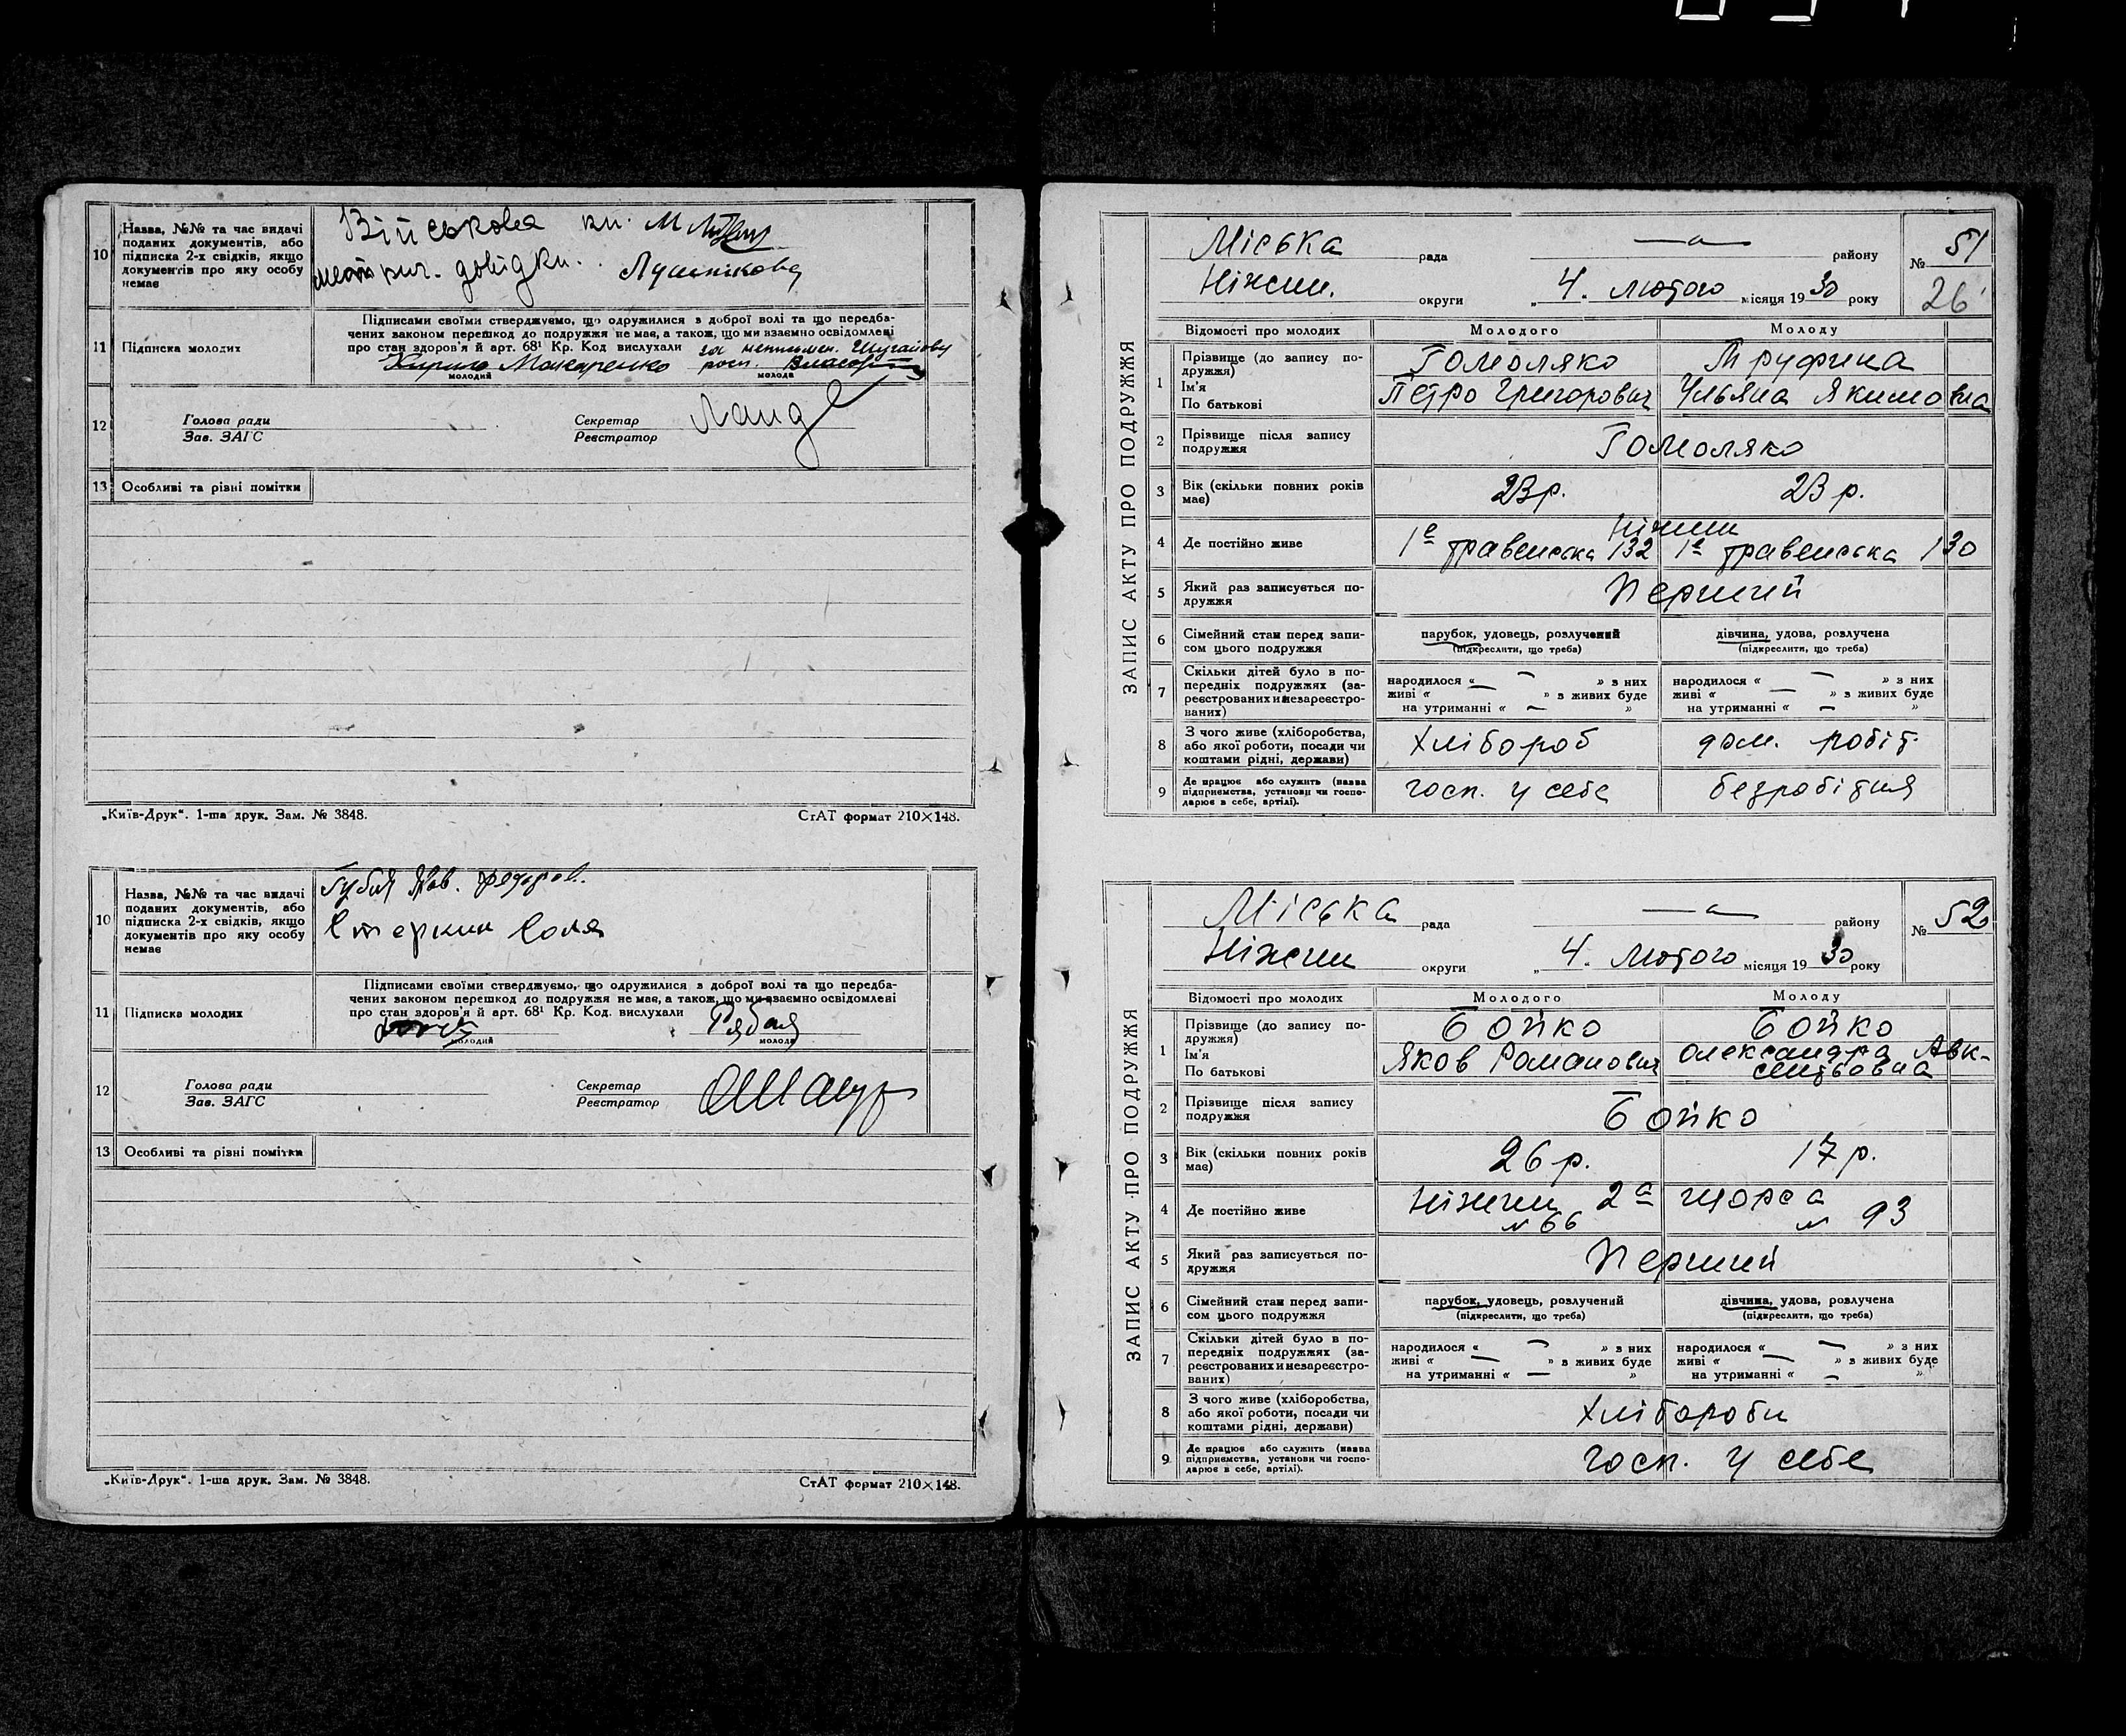 10
Назва, №№ та час видачі
поданих документів, або
підписка 2-х свідків, якщо
документів про яку особу
немає
Військова кн.
метрич. довідки.
Лушнікова
11
Підписка молодих
Підписами своїми стверджуємо, що одружилися з доброї волі та що передба-
чених законом перешкод до подружжя не має, а також, що ми взаємно освідомлені
про стан здоров'я й арт. 68¹ Кр. Код вислухали
за неписьмен. Шугайову
Кирило Макаренко
розп.
молодий
молода
12
Голова ради
Зав. ЗАГС
Секретар
Реєстратор
13
Особливі та рівні помітки
„Київ-Друк“. 1-ша друк. Зам. № 3848.
СтАТ формат 210×148.
10
Назва, №№ та час видачі
поданих документів, або
підписка 2-х свідків, якщо
документів про яку особу
немає
11
Підписка молодих
Підписами своїми стверджуємо, що одружилися з доброї волі та що передба-
чених законом перешкод до подружжя не має, а також, що ми взаємно освідомлені
про стан здоров'я й арт. 68¹ Кр. Код. вислухали
Рябая
молодий
молода
12
Голова ради
Зав. ЗАГС
Секретар
Реєстратор
13
Особливі та рівні помітки
„Київ-Друк“. 1-ша друк. Зам. № 3848.
СтАТ формат 210×148.
ЗАПИС АКТУ ПРО ПОДРУЖЖЯ
Міська рада району № 51
Ніжин. округи „4. лютого місяця 1930 року
26
Відомості про молодих
Молодого
Молоду
1
Прізвище (до запису по-
дружжя)
Ім'я
По батькові
Гомоляко
Труфина
Петро Григорович
Ульяна Якимовна
2
Прізвище після запису
подружжя
Гомоляко
3
Вік (скільки повних років
має)
23 р.
23 р.
4
Де постійно живе
Ніжин
1ª травенська 132
1ª травенська 130
5
Який раз записується по-
дружжя
Перший
6
Сімейний стан перед запи-
сом цього подружжя
парубок, удовець, розлучений
(підкреслити, що треба)
дівчина, удова, розлучена
(підкреслити, що треба)
7
Скільки дітей було в по-
передніх подружжях (за-
реєстрованих и незареєстро-
ваних)
народилося « — » з них
живі « — » з живих буде
на утриманні « — »
народилося « — » з них
живі « — » з живих буде
на утриманні « — »
8
З чого живе (хліборобства,
або якої роботи, посади чи
коштами рідні, держави)
хлібороб
дом. робіт.
9
Де працює або служить (назва
підприємства, установи чи госпо-
дарює в себе, артілі).
госп. у себе
безробітня
ЗАПИС АКТУ ПРО ПОДРУЖЖЯ
Міська рада району № 52
Ніжин округи „4. лютого місяця 1930 року
Відомості про молодих
Молодого
Молоду
1
Прізвище (до запису по-
дружжя)
Ім'я
По батькові
Бойко
Бойко
Яков Романович
Олександра Авк-
сентьовна
2
Прізвище після запису
подружжя
Бойко
3
Вік (скільки повних років
має)
26 р.
17 р.
4
Де постійно живе
Ніжин 2ª щорса
№ 66
№ 93
5
Який раз записується по-
дружжя
Перший
6
Сімейний стан перед запи-
сом цього подружжя
парубок, удовець, розлучений
(підкреслити, що треба)
дівчина, удова, розлучена
(підкреслити, що треба)
7
Скільки дітей було в по-
передніх подружжях (за-
реєстрованих и незареєстро-
ваних)
народилося « — » з них
живі « — » з живих буде
на утриманні « — »
народилося « — » з них
живі « — » з живих буде
на утриманні « — »
8
З чого живе (хліборобства,
або якої роботи, посади чи
коштами рідні, держави)
хлібороби
9
Де працює або служить (назва
підприємства, установи чи госпо-
дарює в себе, артілі).
госп. у себе